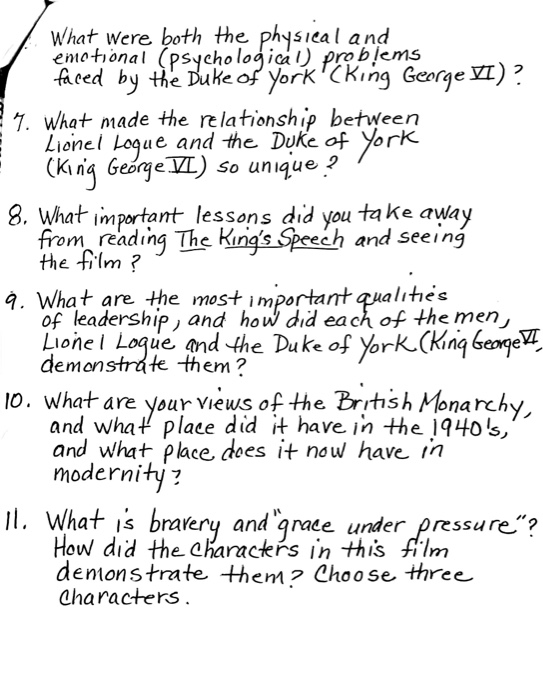 What were both the physical and
emotional (psychological) problems
faced by the Duke of York (King George VI)?
7. What made the relationship between
Lionel Logue and the Duke of York
(King George VI) so unique?
8. What important lessons did you take away
from reading The King's Speech and seeing
the film?
9. What are the most important qualities
of leadership, and how did each of the men,
Lionel Logue and the Duke of York (King George VI,
demonstrate them?
10. What are your views of the British Monarchy,
and what place did it have in the 1940's,
and what place does it now have in
modernity?
11. What is bravery and "grace under pressure"?
How did the characters in this film
demonstrate them? Choose three
characters.